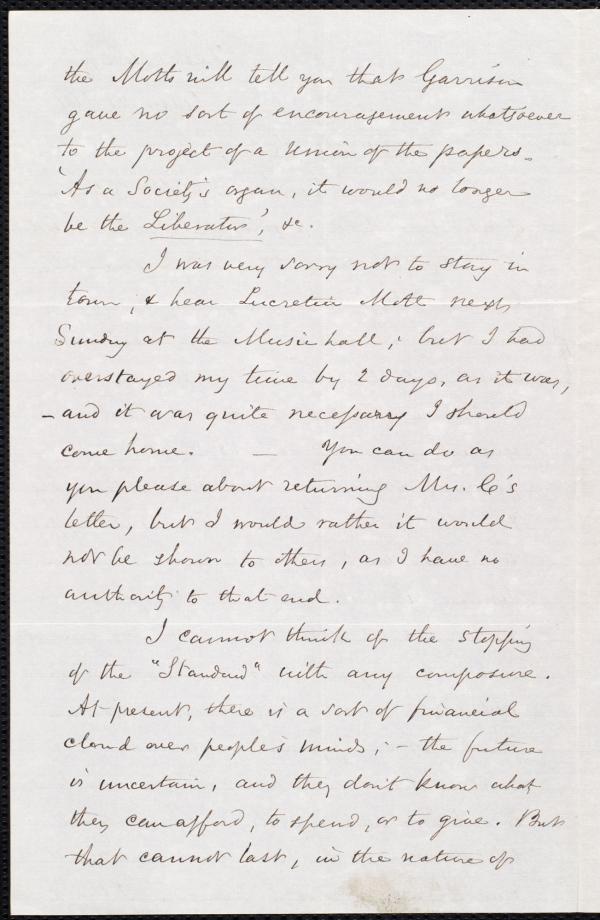 the Motts will tell you that Garrison
gave no sort of encouragement whatsoever
to the project of a Union of the papers.
'As a Society's organ, it would no longer
be the Liberator', &c.
I was very sorry not to stay in
town, & hear Lucretia Mott next
Sunday at the Music hall; but I had
overstayed my time by 2 days, as it was,
- and it was quite necessary I should
come home. — You can do as
you please about returning Mrs. C's
letter, but I would rather it would
not be shown to others, as I have no
authority to that end.
I cannot think of the stopping
of the "Standard" with any composure.
At present, there is a sort of financial
cloud over people's minds; - the future
is uncertain, and they don't know what
they can afford, to spend, or to give. But
that cannot last, in the nature of